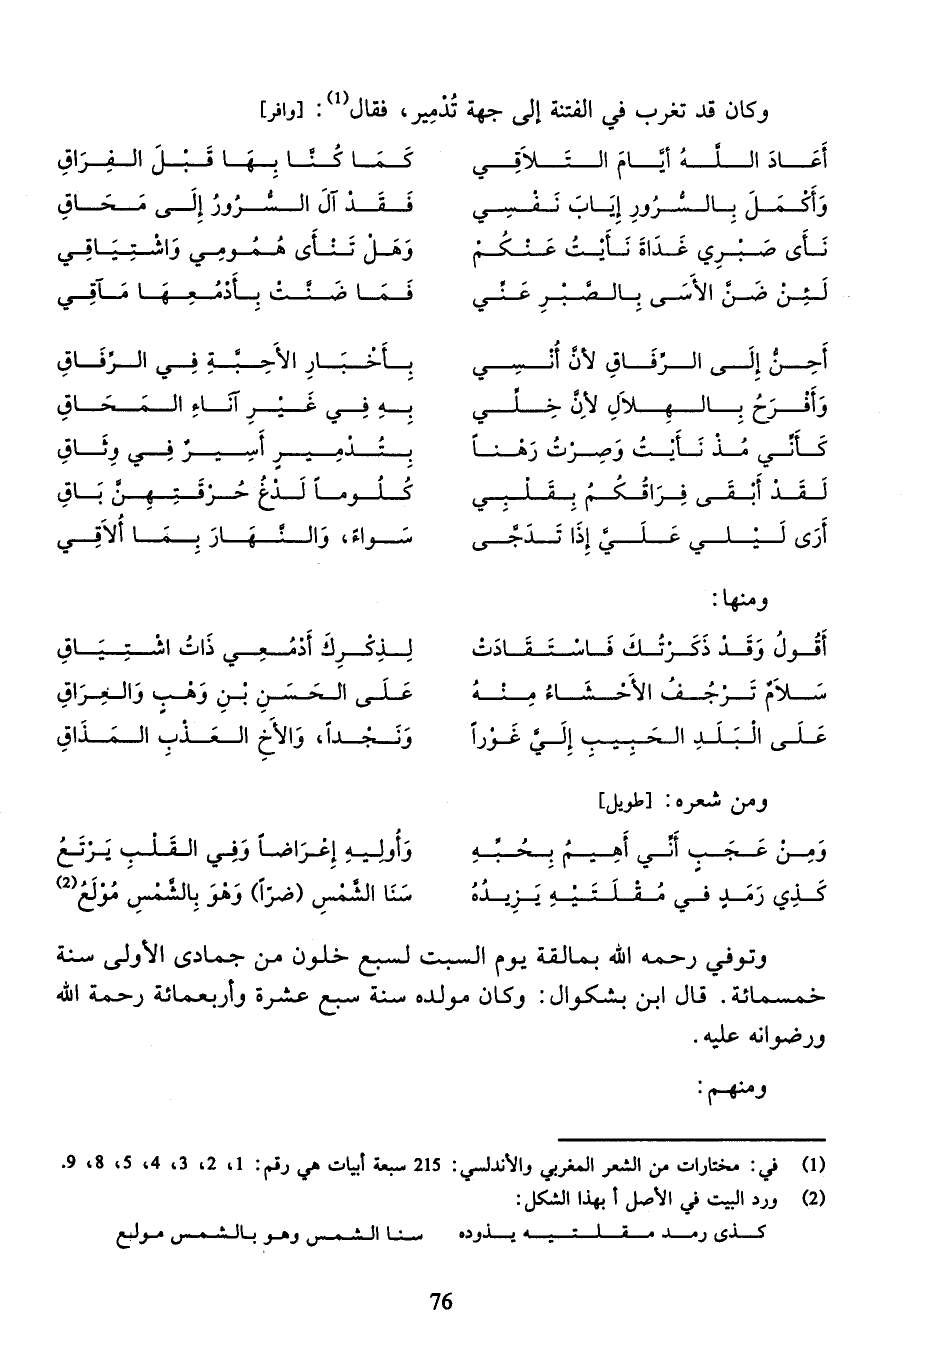 وكان قد تغرب في الفتنة إلى جهة تُدْمِير، فقال(1): [وافر]
أَعَادَ اللَّهُ أيَّامَ التَّلاَقِي كَمَا كُنَّا بِهَا قَبْلَ الفِرَاقِ
وَأَكْمَلَ بِالسُّرُورِ إِيَابَ نَفْسِي فَقَدْ آلَ السُّرُورُ إِلَى مَحَاقِ
نَأَى صَبْرِي غَدَاةَ نَأَيْتُ عَنْكُمْ وَهَلْ تَنْأَى هُمُومِي وَاشْتِيَاقِي
لَئِنْ ضَنَّ الأَسَى بِالصَّبْرِ عَنِّي فَمَا ضَنَّتْ بِأَدْمُعِهَا مَآقِي
أَحِنُّ إِلَى الرِّفَاقِ لأَنَّ أُنْسِي بِأَخْبَارِ الأَحِبَّةِ فِي الرِّفَاقِ
وَأَفْرَحُ بِالهِلاَلِ لأَنَّ خِلِّي بِهِ فِي غَيْرِ آنَاءِ المَحَاقِ
كَأَنِّي مُذْ نَأَيْتُ وَصِرْتُ رَهْناً بِتُدْمِيرٍ أَسِيرٌ فِي وِثَاقِ
لَقَدْ أَبْقَى فِرَاقُكُمُ بِقَلْبِي كُلُوماً لَذْعُ حُرْقَتِهِنَّ بَاقِ
أَرَى لَيْلِي عَلَيَّ إِذَا تَدَجَّى سَوَاءً، وَالنَّهَارَ بِمَا أُلاَقِي
ومنها:
أَقُولُ وَقَدْ ذَكَرْتُكَ فَاسْتَقَادَتْ لِذِكْرِكَ أَدْمُعِي ذَاتُ اشْتِيَاقِ
سَلاَمٌ تَرْجُفُ الأَحْشَاءُ مِنْهُ عَلَى الحَسَنِ بْنِ وَهْبٍ وَالعِرَاقِ
عَلَى البَلَدِ الحَبِيبِ إِلَيَّ غَوْراً وَنَجْداً، وَالأَخِ العَذْبِ المَذَاقِ
ومن شعره: [طويل]
وَمِنْ عَجَبٍ أَنِّي أَهِيمُ بِحُبِّهِ وَأُولِيهِ إِعْرَاضاً وَفِي القَلْبِ يَرْتَعُ
كَذِي رَمَدٍ فِي مُقْلَتَيْهِ يَزِيدُهُ سَنَا الشَّمْسِ (ضرّاً) وَهْوَ بِالشَّمْسِ مُوْلَعُ(2)
وتوفي رحمه الله بمالقة يوم السبت لسبع خلون من جمادى الأولى سنة
خمسمائة. قال ابن بشكوال: وكان مولده سنة سبع عشرة وأربعمائة رحمة الله
ورضوانه عليه.
ومنهم:
(1) في: مختارات من الشعر المغربي والأندلسي: 215 سبعة أبيات هي رقم: 1، 2، 3، 4، 5، 8، 9.
(2) ورد البيت في الأصل أ بهذا الشكل:
كذى رمد مقلتيه يذوده سنا الشمس وهو بالشمس موليع
76